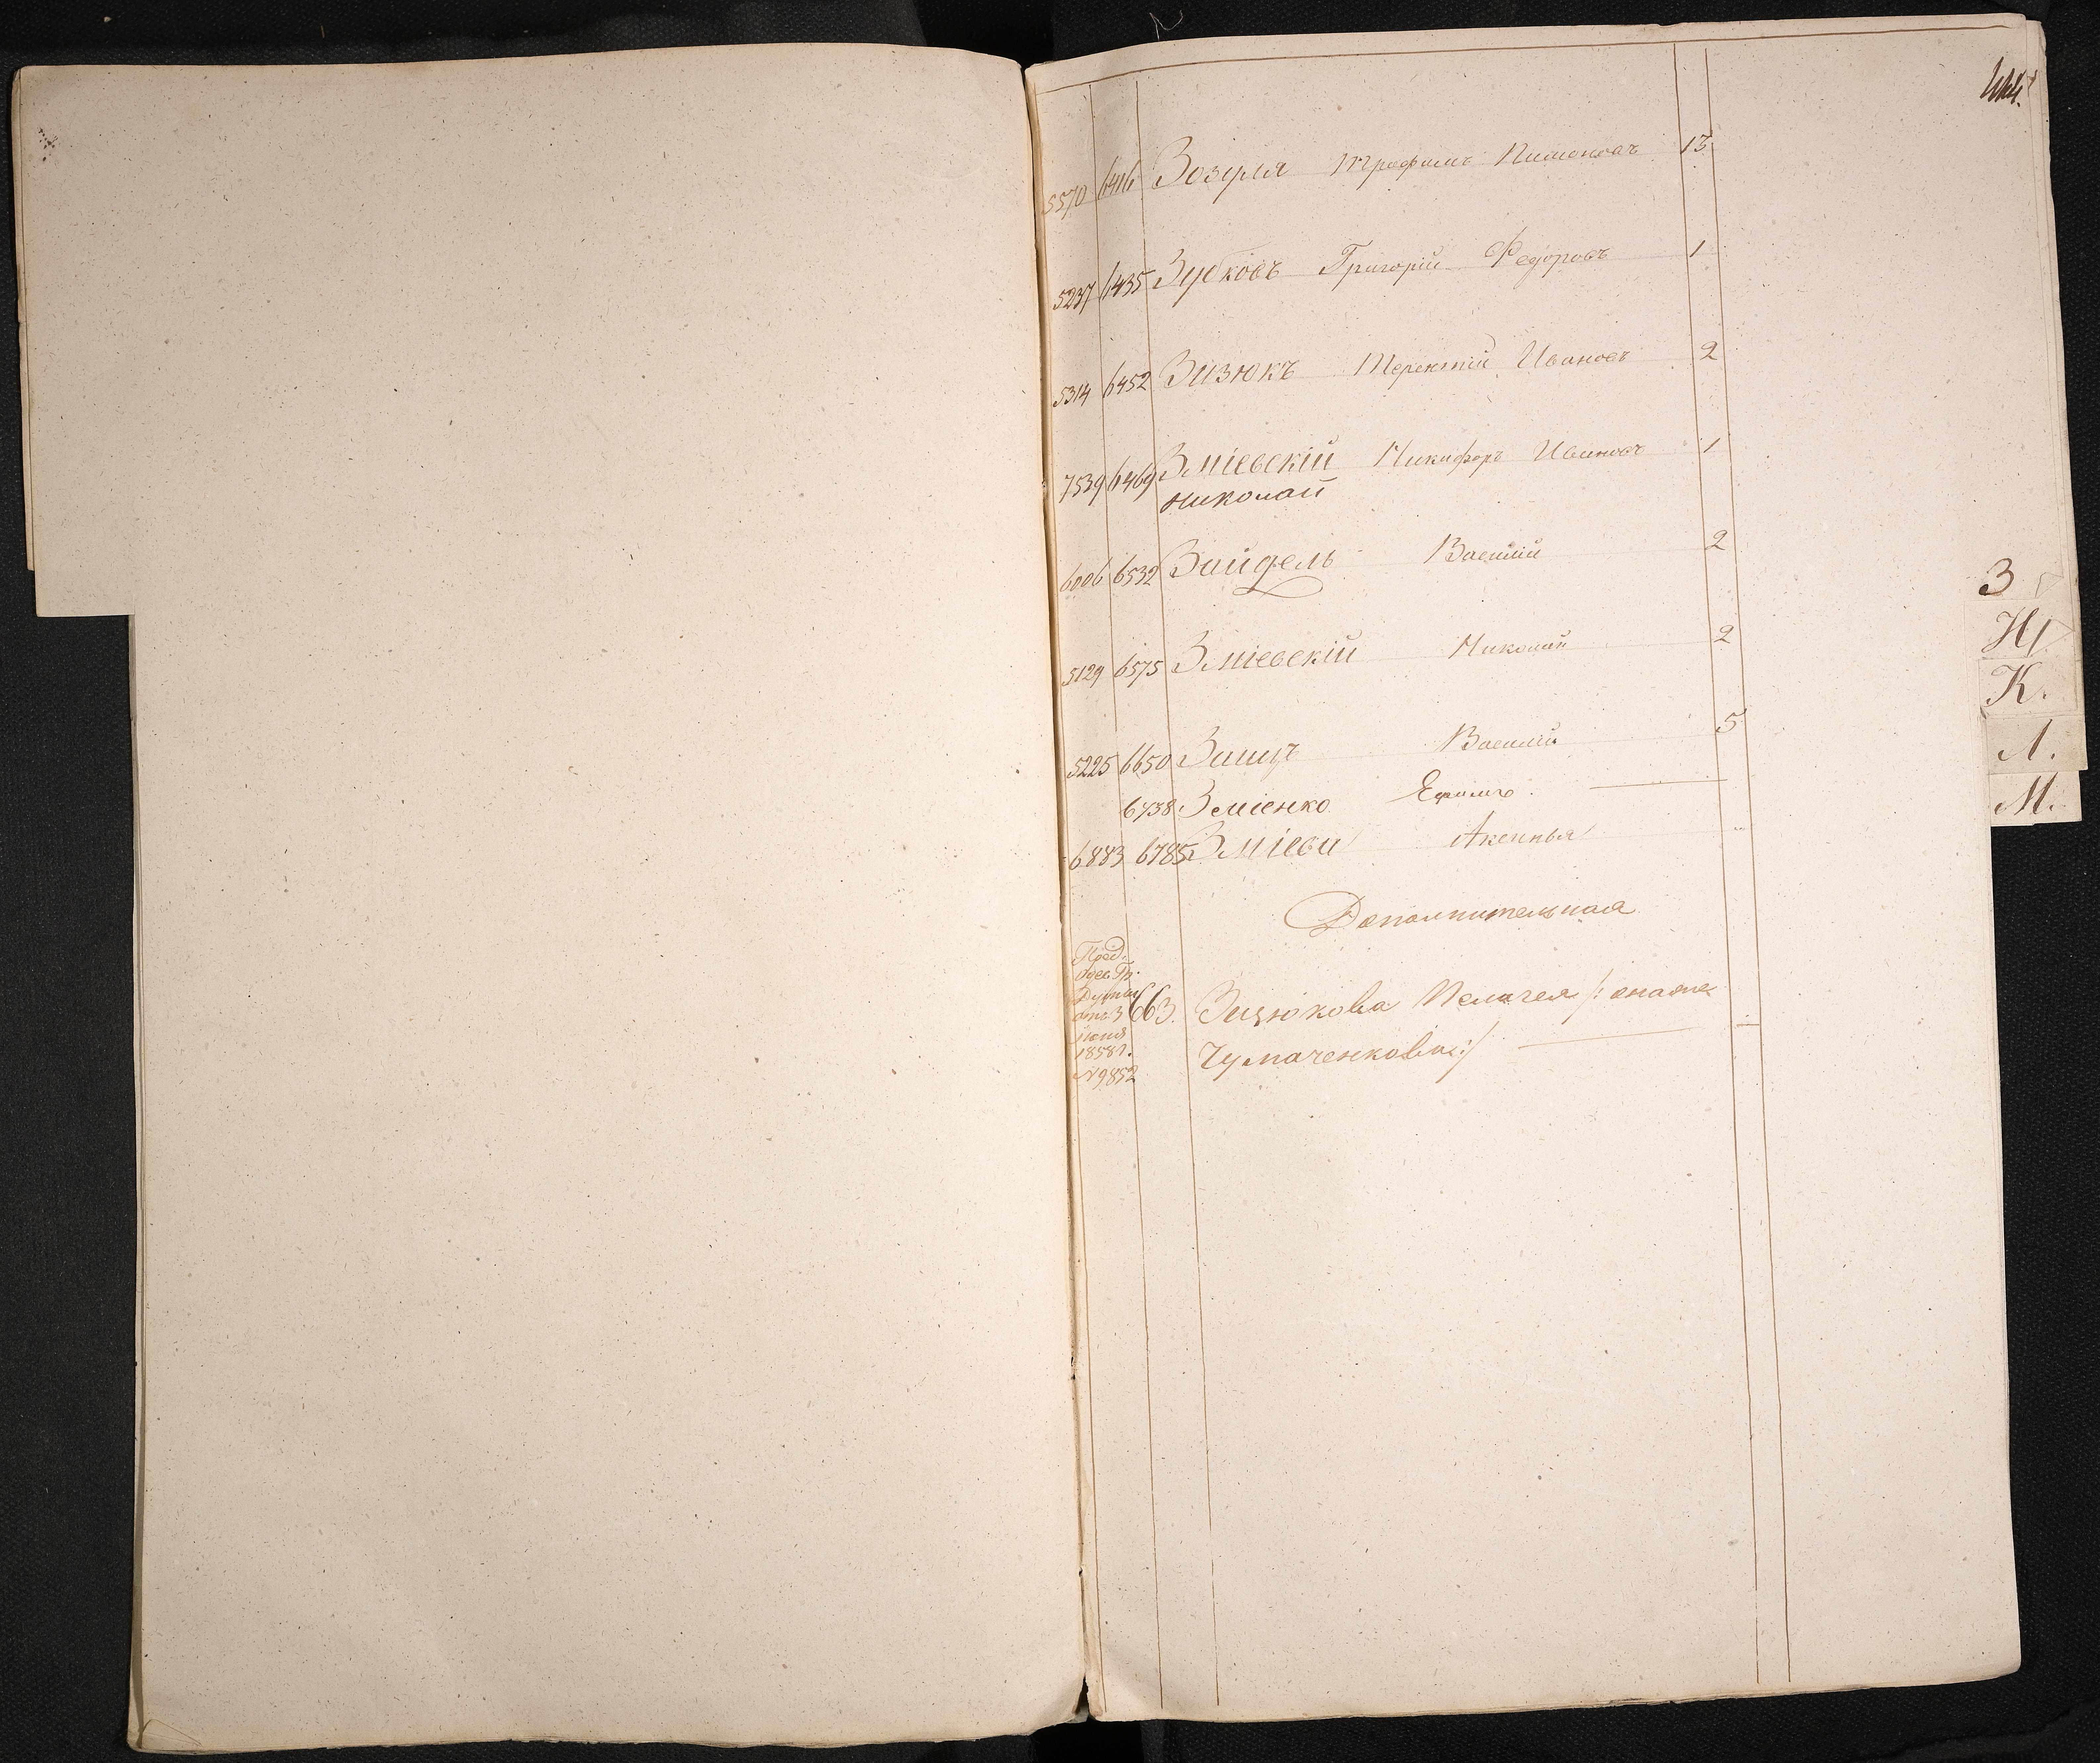 5570 6416 Зозуля Трофимъ Пимоновъ 13
5237 6435 Зубковъ Григорій Федоровъ 1
5314 6452 Зизюкъ Терентій Ивановъ 2
7539 6469 Зміевскій Никифоръ Ивановъ 1
Николай
6006 6532 Зайдель Василій 2
5129 6575 Зміевскій Николай 2
5225 6650 Василій 5
6738 Зміенко Ефимъ.
6883 6785 Аксинья
Дополнительная
Пред.
Одес. Гр.
Думы
отъ 3
іюня
1858 г.
N 9852
663. Зизюкова Пелагея /: онаже
Чумаченкова :/
З
И
К.
Л.
М.